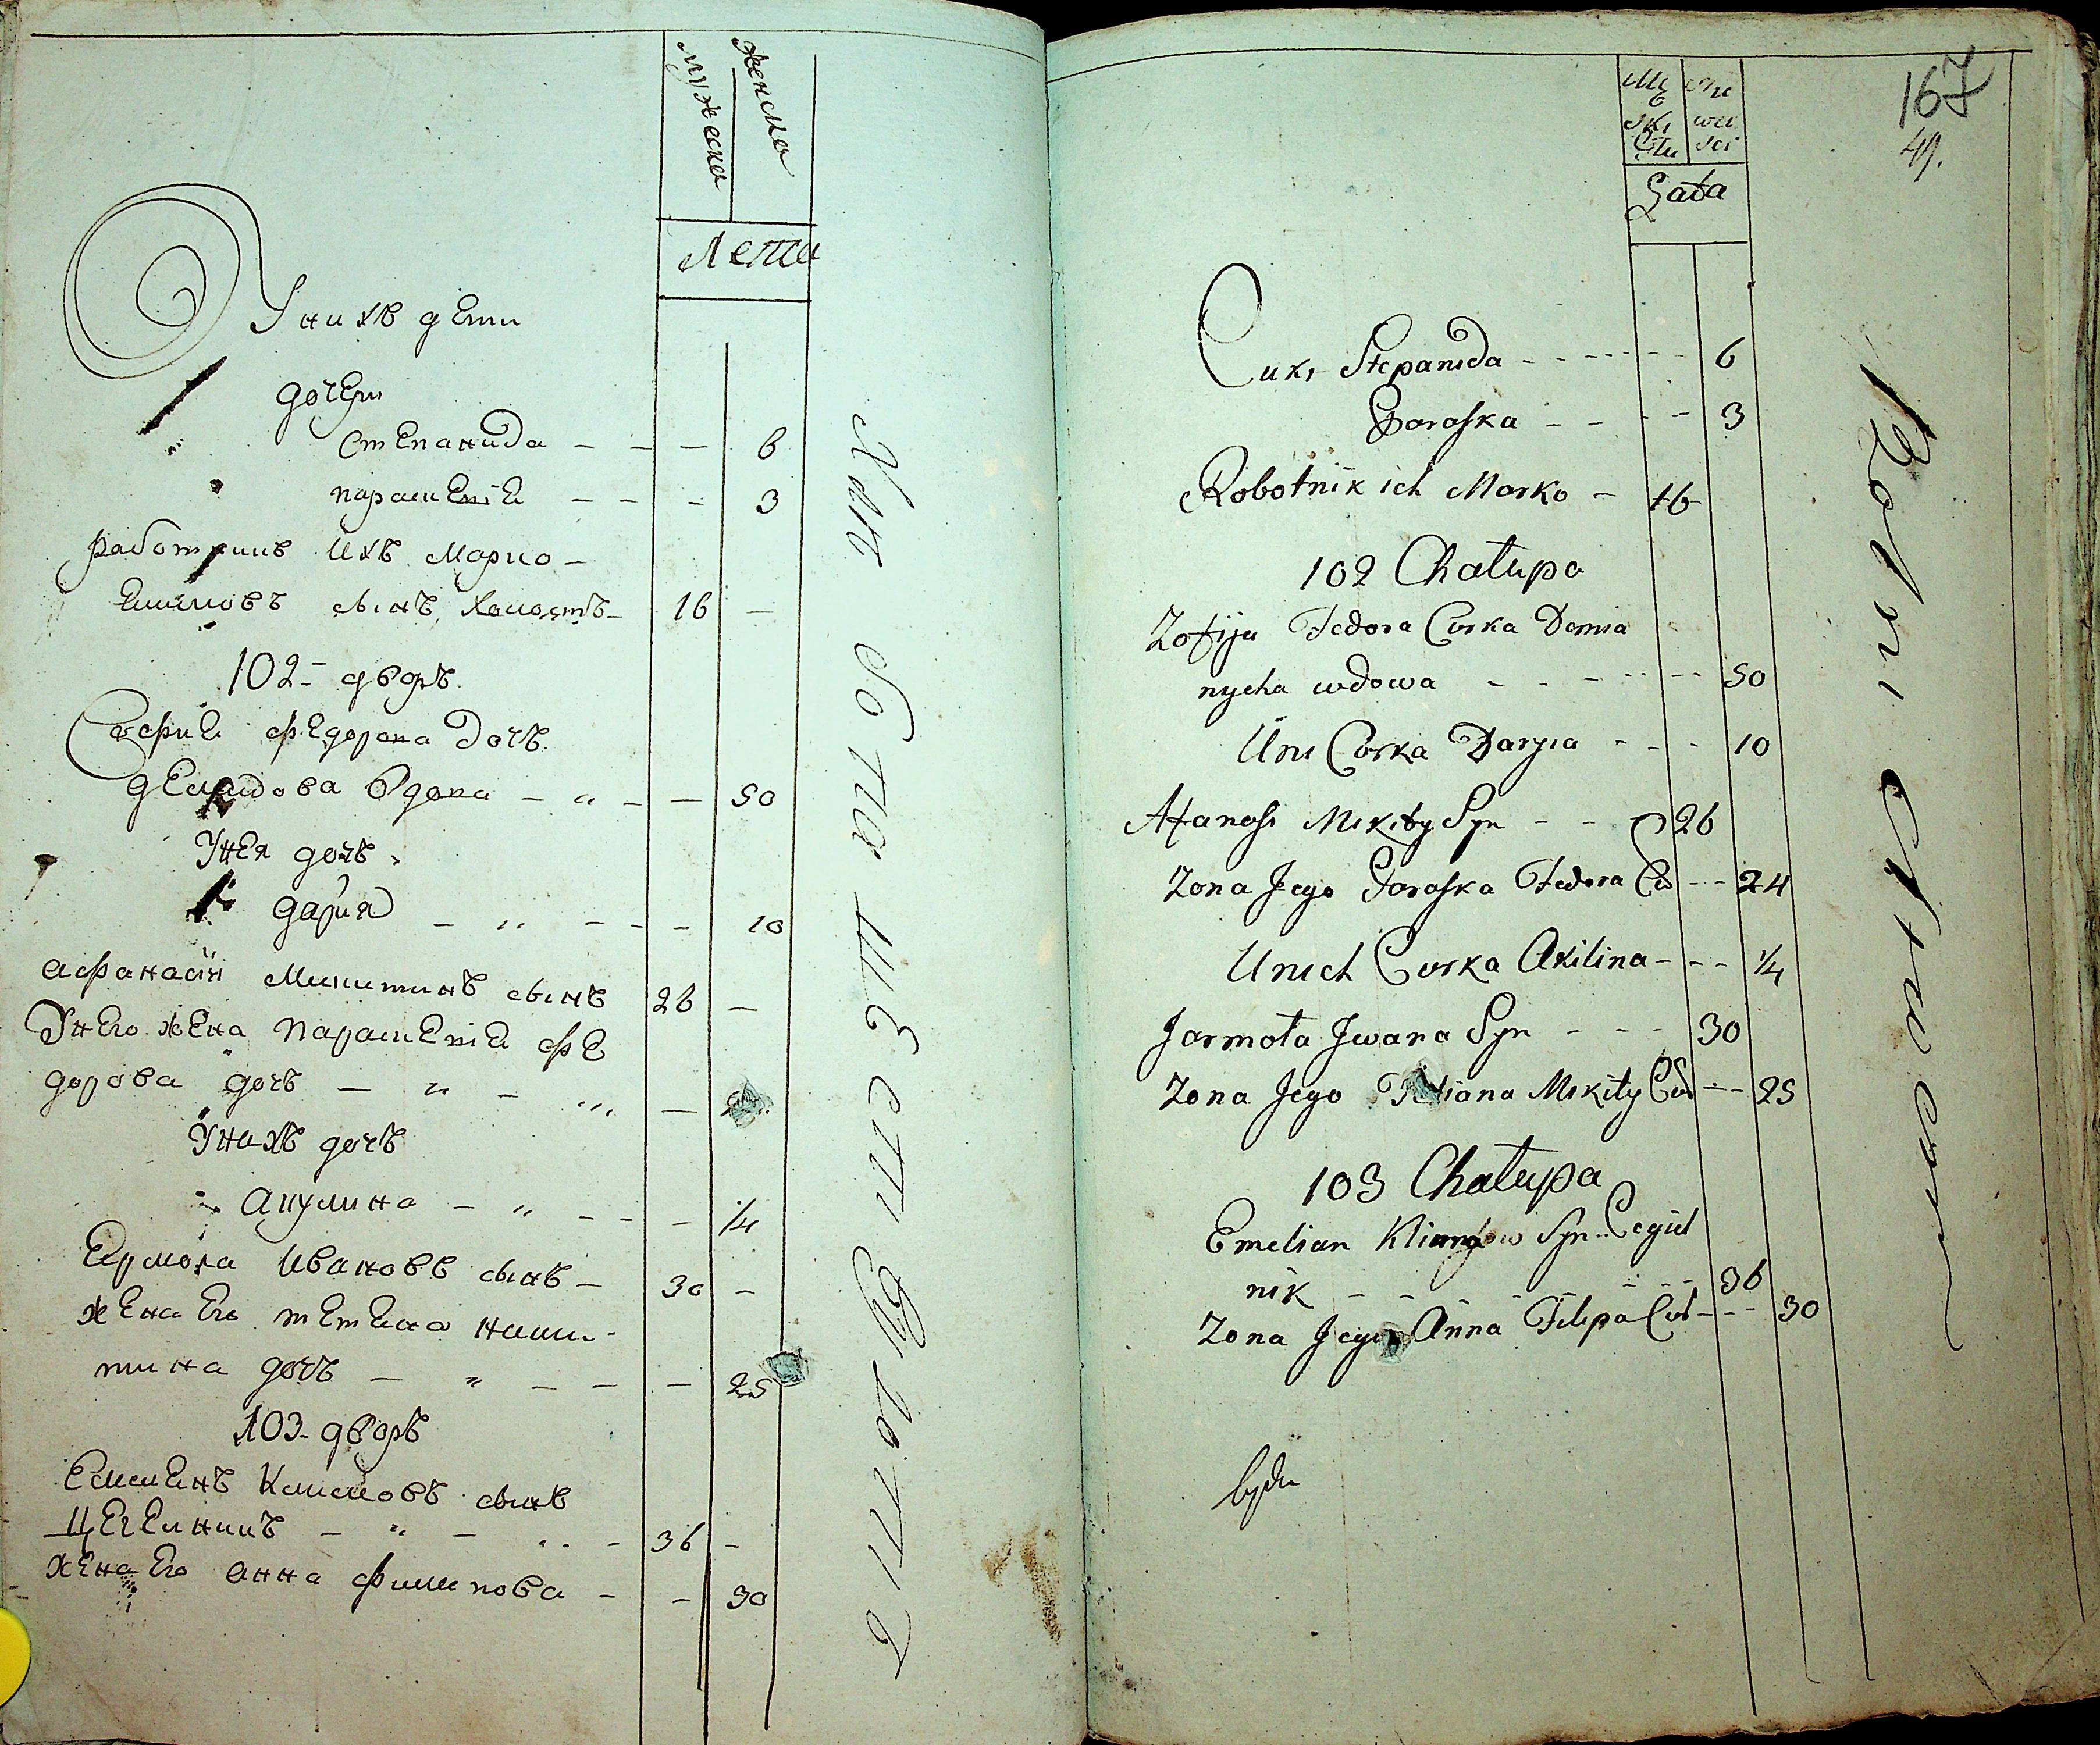 мужеска
женска
Лета
У нихъ дети
дочери
Степанида - - - 6
парашкевіа - - - 3
работникъ ихъ Марко -
Климовъ сынъ, холостъ - 16 -
102 - дворъ
Софиа федорова дочъ
демидова вдова - " - - 50
У нея дочъ
дария - " - - - 10
афанасiй Микитинъ сынъ 26 -
У него жена парашкевiа фе
дорова дочъ - " - " -
У нихъ дочъ
акулина - " - - - 1/4
Ермола Ивановъ сынъ - 30 -
жена Его тетіана ники-
тина дочъ - " - - - 25
103 - дворъ
Емелианъ Климовъ сынъ
Цегелникъ - " - " - 36 -
жена Его анна филипова - - 30
167
49.
Męskiey płci
Lata
Curki Stepanida - - - - - 6
Paraska - - - - 3
Robotnik ich Marko - 16
102 Chałupa
Zofija Fedora Curka Demia
nycha wdowa - - - - - 50
Uni Corka Daryia - - - 10
Afanasi Mikity Syn - - - 26
Zona Jego Paraska Fedora Cur - - 24
Unich Curka Akilina - - - 1/4
Jarmoła Jwana Syn - - - 30
Zona Jego Tetiana Mikity Cur - - 25
103 Chałupa
Emelian Klimow Syn Cegiel
nik - - - - - - 36
Zona Jego Anna Filipa Cur - - - 30